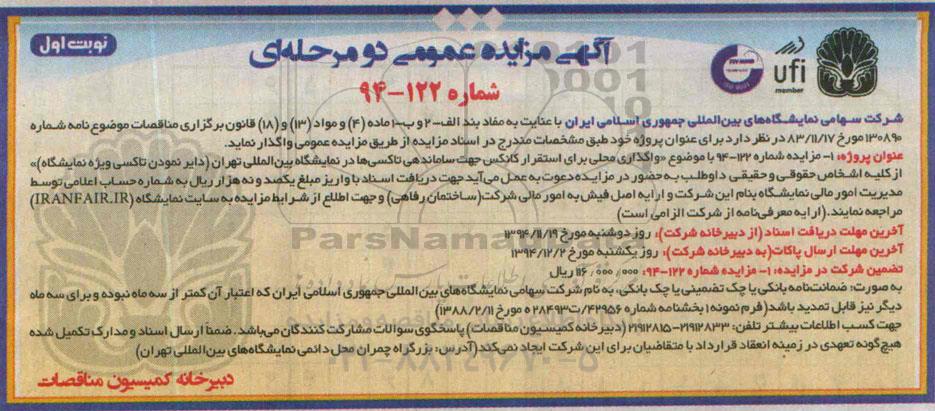 نوبت اول
آگهی مزایده عمومی دو مرحله‌ای
شماره ۱۲۲-۹۴
ufi
member
شرکت سهامی نمایشگاه‌های بین‌المللی جمهوری اسلامی ایران با عنایت به مفاد بند الف-۲ و ب-۱ ماده (۴) و مواد (۱۳) و (۱۸) قانون برگزاری مناقصات موضوع نامه شماره
۱۳۰۸۹۰ مورخ ۸۳/۱۱/۱۷ در نظر دارد برای عنوان پروژه خود طبق مشخصات مندرج در اسناد مزایده از طریق مزایده عمومی واگذار نماید.
عنوان پروژه: ۱- مزایده شماره ۱۲۲-۹۴ با موضوع «واگذاری محلی برای استقرار کانکس جهت ساماندهی تاکسی‌ها در نمایشگاه بین‌المللی تهران (دایر نمودن تاکسی ویژه نمایشگاه)»
از کلیه اشخاص حقوقی و حقیقی داوطلب به حضور در مزایده دعوت به عمل می‌آید جهت دریافت اسناد با واریز مبلغ یکصد و نه هزار ریال به شماره حساب اعلامی توسط
مدیریت امور مالی نمایشگاه بنام این شرکت و ارایه اصل فیش به امور مالی شرکت (ساختمان رفاهی) و جهت اطلاع از شرایط مزایده به سایت نمایشگاه (IRANFAIR.IR)
مراجعه نمایند. (ارایه معرفی‌نامه از شرکت الزامی است)
آخرین مهلت دریافت اسناد (از دبیرخانه شرکت): روز دوشنبه مورخ ۱۳۹۴/۱۱/۱۹
آخرین مهلت ارسال پاکات (به دبیرخانه شرکت): روز یکشنبه مورخ ۱۳۹۴/۱۲/۲
تضمین شرکت در مزایده: ۱- مزایده شماره ۱۲۲-۹۴: ۱۱۶/۰۰۰/۰۰۰ ریال
به صورت: ضمانت‌نامه بانکی یا چک تضمینی یا چک بانکی، به نام شرکت سهامی نمایشگاه‌های بین‌المللی جمهوری اسلامی ایران که اعتبار آن کمتر از سه ماه نبوده و برای سه ماه
دیگر نیز قابل تمدید باشد (فرم نمونه ۱ بخشنامه شماره ۴۲۹۵۶/ت۲۸۴۹۳ ه مورخ ۱۳۸۸/۲/۱۱)
جهت کسب اطلاعات بیشتر تلفن: ۲۱۹۱۲۸۳۳-۲۱۹۱۲۸۱۵ (دبیرخانه کمیسیون مناقصات) پاسخگوی سوالات مشارکت کنندگان می‌باشد. ضمناً ارسال اسناد و مدارک تکمیل شده
هیچ‌گونه تعهدی در زمینه انعقاد قرارداد با متقاضیان برای این شرکت ایجاد نمی‌کند (آدرس: بزرگراه چمران محل دائمی نمایشگاه‌های بین‌المللی تهران)
دبیرخانه کمیسیون مناقصات
ParsNamadData